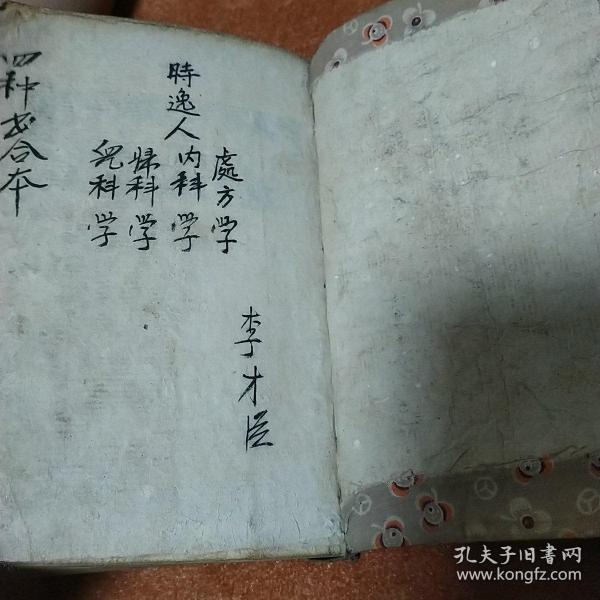 處方学
時逸人内科学
婦科学
兒科学
李才臣
四种書合本
孔夫子旧書网
www.kongfz.com